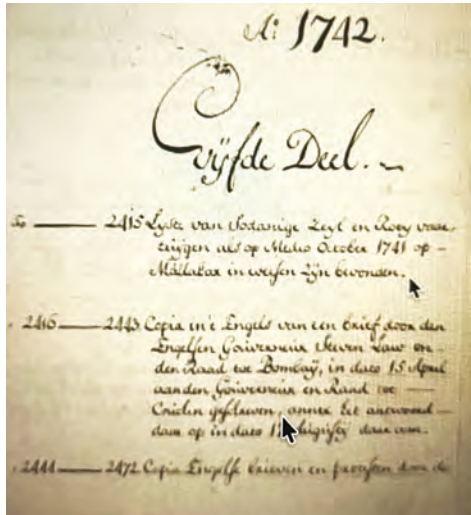 A: 1742.
Vijfde Deel.
2415 Lyste van sodanige Zeyl en Roey vaar-
tuijgen als op Medio October 1741 op
Mallabaar in weesen zijn bevonden.
2416 2443 Copia in't Engels van een brief door den
Engelsen Gouverneur Steven Law en
den Raad tot Bombaij, in dato 15 April
aan den Gouverneur en Raad tot
Cochin geschreven, annex het antwoord
daar op in dato daar aan.
2444 2472 Copia Engelse brieven en door de